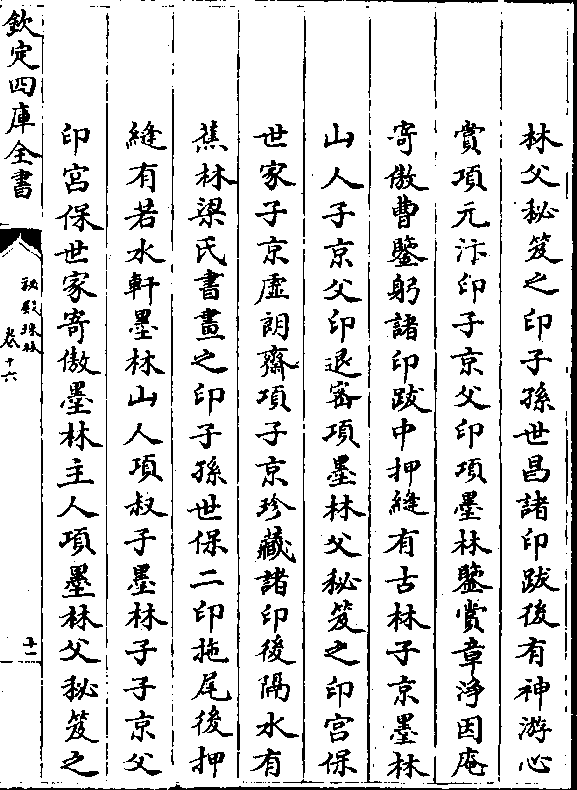 林父秘笈之印子孫世昌諸印跋後有神游心
賞項元汴印子京父印項墨林鑒賞章淨因庵
寄傲曹鑒躬諸印跋中押縫有古林子京墨林
山人子京父印退密項墨林父秘笈之印宮保
世家子京虛朗齋項子京珍藏諸印後隔水有
蕉林梁氏書畫之印子孫世保二印拖尾後押
縫有若水軒墨林山人項叔子墨林子子京父
印宮保世家寄傲墨林主人項墨林父秘笈之
欽定四庫全書
秘殿珠林
卷十六
十一